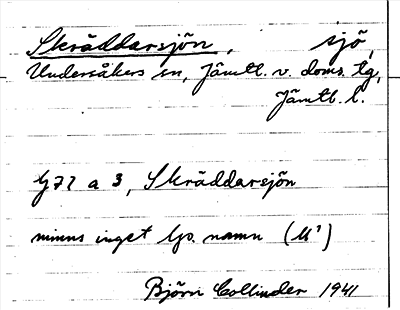 Skräddarsjön, sjö,
Undersåkers sn, Jämtl. v. doms. tg,
Jämtl. l.
G72 a 3, Skräddarsjön
minns inget lps. namn (M¹)
Björn Collinder 1941